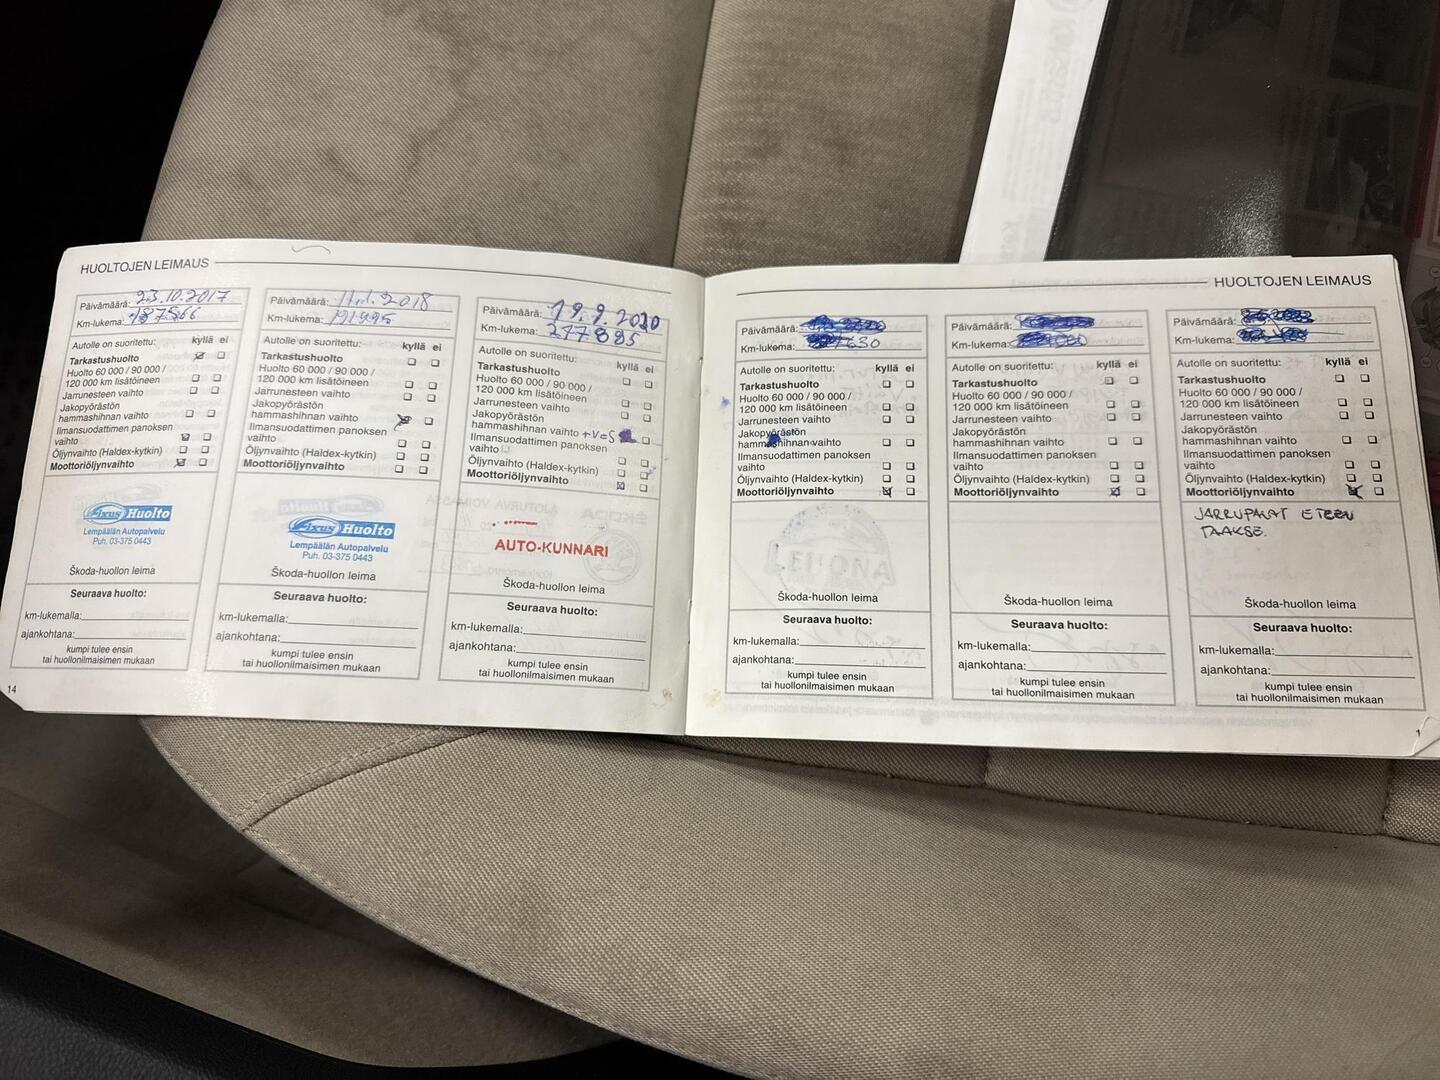 HUOLTOJEN LEIMAUS
Päivämäärä: 23.10.2017
Km-lukema: 187566
Autolle on suoritettu: kyllä ei
Tarkastushuolto
Huolto 60 000 / 90 000 /
120 000 km lisätöineen
Jarrunesteen vaihto
Jakopyörästön
hammashihnan vaihto
Ilmansuodattimen panoksen
vaihto
Öljynvaihto (Haldex-kytkin)
Moottoriöljynvaihto
Axus Huolto
Lempäälän Autopalvelu
Puh. 03-375 0443
Škoda-huollon leima
Seuraava huolto:
km-lukemalla:
ajankohtana:
kumpi tulee ensin
tai huollonilmaisimen mukaan
14
Päivämäärä: 2018
Km-lukema: 191995
Autolle on suoritettu: kyllä ei
Tarkastushuolto
Huolto 60 000 / 90 000 /
120 000 km lisätöineen
Jarrunesteen vaihto
Jakopyörästön
hammashihnan vaihto
Ilmansuodattimen panoksen
vaihto
Öljynvaihto (Haldex-kytkin)
Moottoriöljynvaihto
Axus Huolto
Lempäälän Autopalvelu
Puh. 03-375 0443
Škoda-huollon leima
Seuraava huolto:
km-lukemalla:
ajankohtana:
kumpi tulee ensin
tai huollonilmaisimen mukaan
Päivämäärä: 19.9.2020
Km-lukema: 247895
Autolle on suoritettu: kyllä ei
Tarkastushuolto
Huolto 60 000 / 90 000 /
120 000 km lisätöineen
Jarrunesteen vaihto
Jakopyörästön
hammashihnan vaihto
Ilmansuodattimen panoksen
vaihto
Öljynvaihto (Haldex-kytkin)
Moottoriöljynvaihto
AUTO-KUNNARI
Škoda-huollon leima
Seuraava huolto:
km-lukemalla:
ajankohtana:
kumpi tulee ensin
tai huollonilmaisimen mukaan
HUOLTOJEN LEIMAUS
Päivämäärä:
Km-lukema: 7630
Autolle on suoritettu: kyllä ei
Tarkastushuolto
Huolto 60 000 / 90 000 /
120 000 km lisätöineen
Jarrunesteen vaihto
Jakopyörästön
hammashihnan vaihto
Ilmansuodattimen panoksen
vaihto
Öljynvaihto (Haldex-kytkin)
Moottoriöljynvaihto
Škoda-huollon leima
Seuraava huolto:
km-lukemalla:
ajankohtana:
kumpi tulee ensin
tai huollonilmaisimen mukaan
Päivämäärä:
Km-lukema:
Autolle on suoritettu: kyllä ei
Tarkastushuolto
Huolto 60 000 / 90 000 /
120 000 km lisätöineen
Jarrunesteen vaihto
Jakopyörästön
hammashihnan vaihto
Ilmansuodattimen panoksen
vaihto
Öljynvaihto (Haldex-kytkin)
Moottoriöljynvaihto
Škoda-huollon leima
Seuraava huolto:
km-lukemalla:
ajankohtana:
kumpi tulee ensin
tai huollonilmaisimen mukaan
Päivämäärä:
Km-lukema:
Autolle on suoritettu: kyllä ei
Tarkastushuolto
Huolto 60 000 / 90 000 /
120 000 km lisätöineen
Jarrunesteen vaihto
Jakopyörästön
hammashihnan vaihto
Ilmansuodattimen panoksen
vaihto
Öljynvaihto (Haldex-kytkin)
Moottoriöljynvaihto
JARRUPALAT ETEEN
TAAKSE.
Škoda-huollon leima
Seuraava huolto:
km-lukemalla:
ajankohtana:
kumpi tulee ensin
tai huollonilmaisimen mukaan